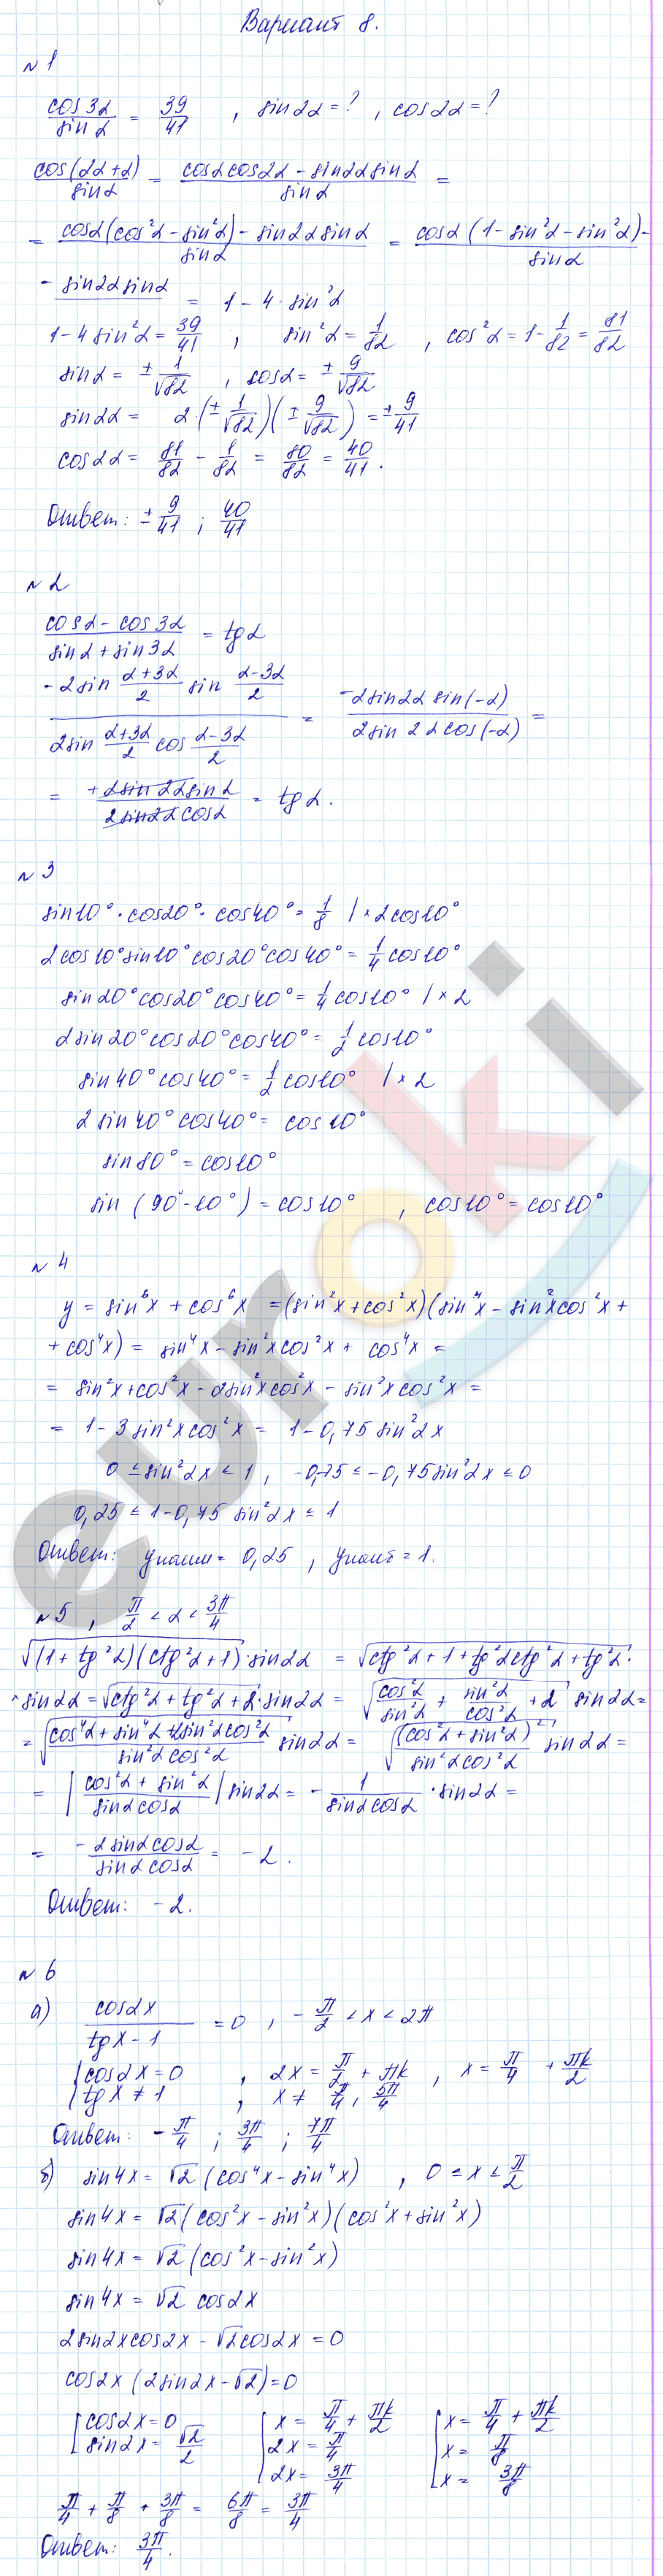 Вариант 8.
№ 1
cos3α/sinα = 39/41 , sin2α = ? , cos2α = ?
cos(2α+α)/sinα = (cosα cos2α − sin2α sinα)/sinα =
= (cosα(cos²α − sin²α) − sin2α sinα)/sinα = (cosα (1 − sin²α − sin²α) −)/sinα
(− sin2α sinα)/ = 1 − 4 · sin²α
1 − 4 sin²α = 39/41 , sin²α = 1/82 , cos²α = 1 − 1/82 = 81/82
sinα = ± 1/√82 , cosα = ± 9/√82
sin2α = 2 · (± 1/√82)(± 9/√82) = ± 9/41
cos2α = 81/82 − 1/82 = 80/82 = 40/41.
Ответ: ± 9/41 ; 40/41
№ 2
(cosα − cos3α)/(sinα + sin3α) = tgα
(−2sin (α+3α)/2 sin (α−3α)/2)/(2sin (α+3α)/2 cos (α−3α)/2) = (−2sin2α sin(−α))/(2sin 2α cos(−α)) =
= (+2sin2α sinα)/(2sin2α cosα) = tgα.
№ 3
sin10° · cos20° · cos40° = 1/8 | × 2cos10°
2cos10° sin10° cos20° cos40° = 1/4 cos10°
sin20° cos20° cos40° = 1/4 cos10° | × 2
2sin20° cos20° cos40° = 1/2 cos10°
sin40° cos40° = 1/2 cos10° | × 2
2 sin40° cos40° = cos10°
sin80° = cos10°
sin (90° − 10°) = cos10° , cos10° = cos10°
№ 4
y = sin⁶x + cos⁶x = (sin²x + cos²x)(sin⁴x − sin²x cos²x +
+ cos⁴x) = sin⁴x − sin²x cos²x + cos⁴x =
= sin²x + cos²x − 2sin²x cos²x − sin²x cos²x =
= 1 − 3 sin²x cos²x = 1 − 0,75 sin²2x
0 ≤ sin²2x ≤ 1 , −0,75 ≤ −0,75sin²2x ≤ 0
0,25 ≤ 1 − 0,75 sin²2x ≤ 1
Ответ: yнаим = 0,25 , yнаиб = 1.
№ 5 , π/2 < α < 3π/4
√((1 + tg²α)(ctg²α + 1)) · sin2α = √(ctg²α + 1 + tg²α ctg²α + tg²α) ·
· sin2α = √(ctg²α + tg²α + 2) · sin2α = √(cos²α/sin²α + sin²α/cos²α + 2) sin2α =
= √((cos⁴α + sin⁴α + 2sin²α cos²α)/(sin²α cos²α)) sin2α = √((cos²α + sin²α)²/(sin²α cos²α)) sin2α =
= |(cos²α + sin²α)/(sinα cosα)| sin2α = − 1/(sinα cosα) · sin2α =
= (−2sinα cosα)/(sinα cosα) = −2.
Ответ: −2.
№ 6
а) cos2x/(tgx − 1) = 0 , − π/2 < x < 2π
{cos2x = 0 , 2x = π/2 + πk , x = π/4 + πk/2
{tgx ≠ 1 , x ≠ π/4 , 5π/4
Ответ: − π/4 ; 3π/4 ; 7π/4
б) sin4x = √2 (cos⁴x − sin⁴x) , 0 ≤ x ≤ π/2
sin4x = √2 (cos²x − sin²x)(cos²x + sin²x)
sin4x = √2 (cos²x − sin²x)
sin4x = √2 cos2x
2sin2x cos2x − √2cos2x = 0
cos2x (2sin2x − √2) = 0
[cos2x = 0 [x = π/4 + πk/2 [x = π/4 + πk/2
[sin2x = √2/2 [2x = π/4 [x = π/8
[2x = 3π/4 [x = 3π/8
π/4 + π/8 + 3π/8 = 6π/8 = 3π/4
Ответ: 3π/4.
euroki